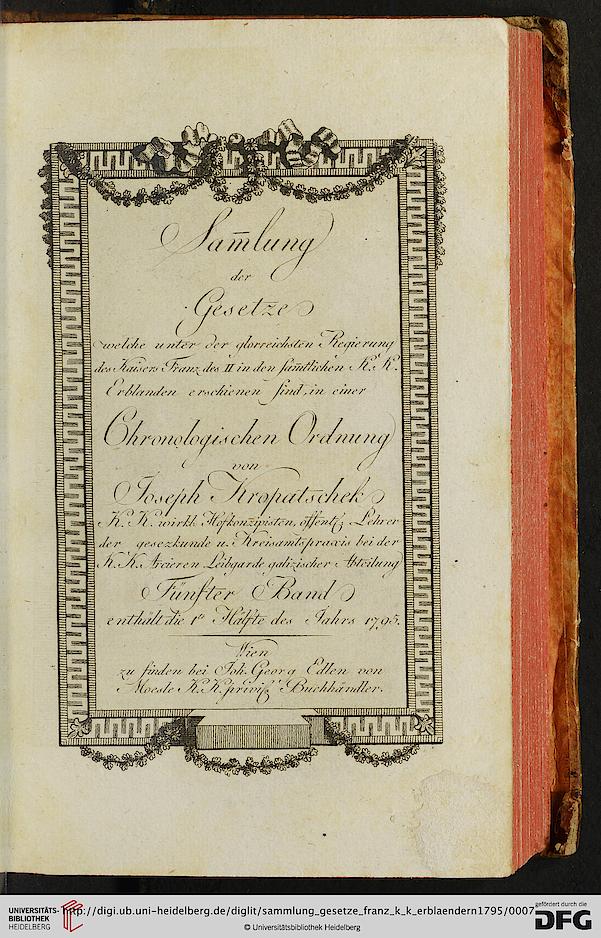 Sam̅lung
der
Gesetze
welche unter der glorreichsten Regierung
des Kaisers Franz des II in den sam̅tlichen K. K.
Erblanden erschienen sind, in einer
Chronologischen Ordnung
von
Joseph Kropatschek
K. K. wirkl. Hofkonzipisten, öffentl. Lehrer
der gesezkunde u. Kreisamtspraxis bei der
K. K. Arcieren Leibgarde galizischer Abteilung
Fünfter Band
enthält die 1te Hälfte des Jahrs 1795.
Wien
zu finden bei Joh. Georg Edlen von
Moesle K. K. privil. Buchhändler.
UNIVERSITÄTS-
BIBLIOTHEK
HEIDELBERG
http://digi.ub.uni-heidelberg.de/diglit/sammlung_gesetze_franz_k_k_erblaendern1795/0007
© Universitätsbibliothek Heidelberg
gefördert durch die
DFG